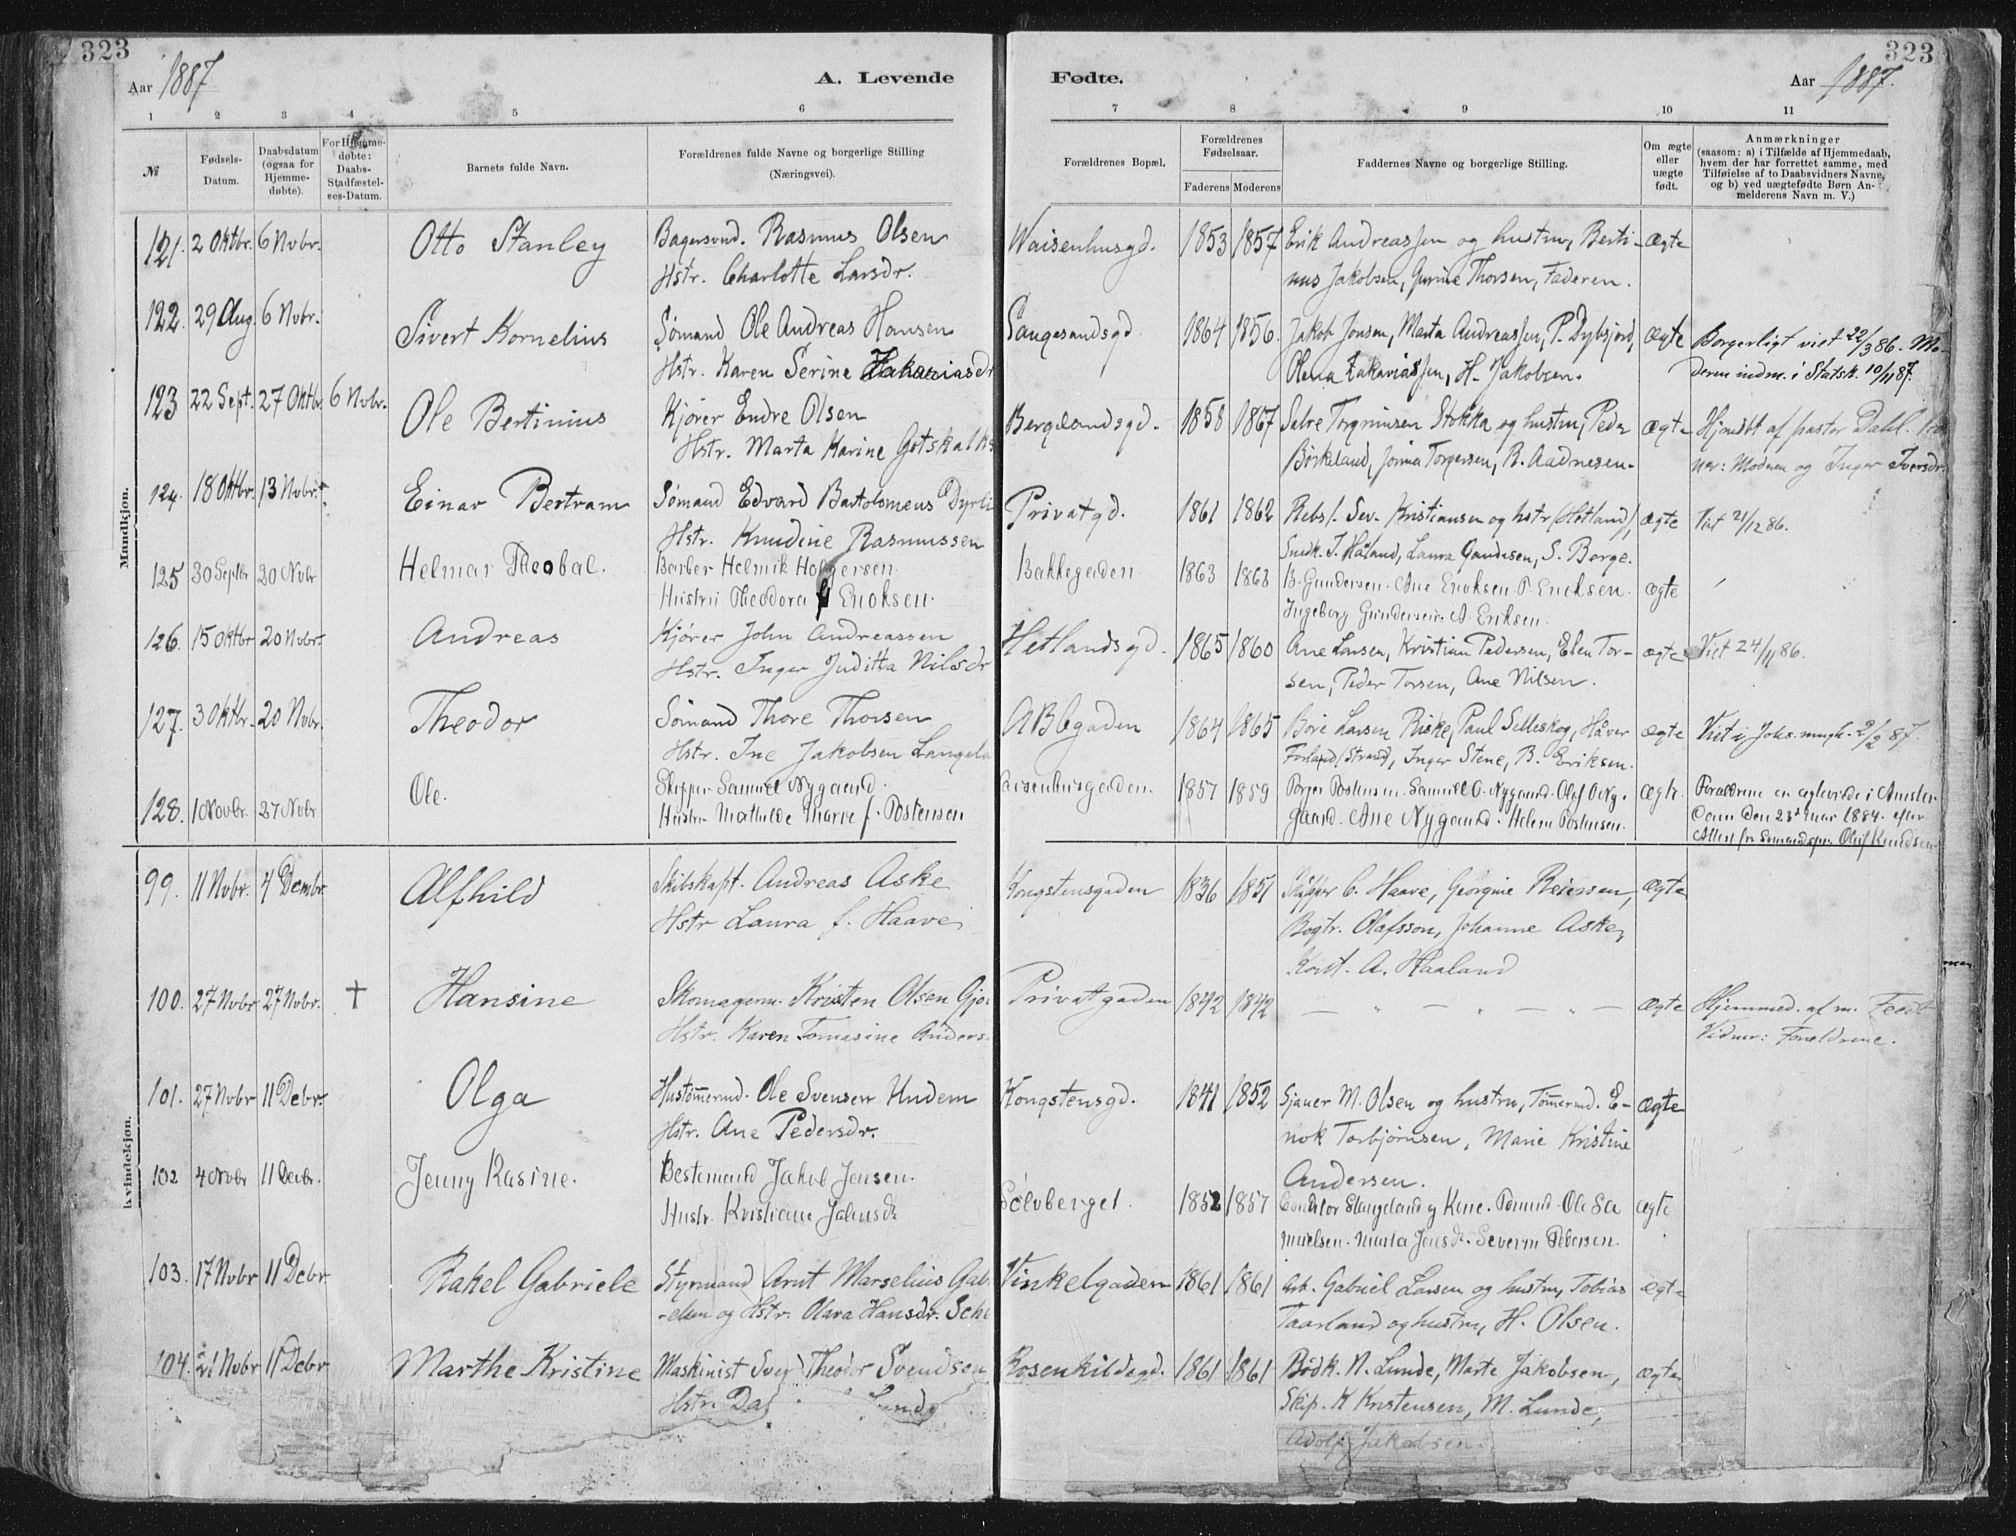 323
323
Aar 1887
A. Levende
Fødte.
Aar 1887.
1 2 3 4 5 6 7 8 9 10 11
№
Fødsels-Datum.
Daabsdatum (ogsaa for Hjemme-døbte).
For Hjemme-døbte: Daabs-Stadfæstel-ses-Datum.
Barnets fulde Navn.
Forældrenes fulde Navne og borgerlige Stilling
(Næringsvei).
Forældrenes Bopæl.
Forældrenes Fødselsaar.
Faderens Moderens
Faddernes Navne og borgerlige Stilling.
Om ægte eller uægte født.
Anmærkninger
(saasom: a) i Tilfælde af Hjemmedaab,
hvem der har forrettet samme, med
Tilføielse af to Daabsvidners Navne,
og b) ved uægtefødte Børn An-
melderens Navn m. V.)
Mandkjøn.
121. 2 Oktbr. 6 Nvbr. Otto Stanley Bagersvnd. Rasmus Olsen Waisenhusgd. 1853 1857 Erik Andreassen og hustru, Berti- ægte
Hstr. Charlotte Larsdr. nus Jakobsen, Gurine Thorsen, Faderen.
122. 29 Aug. 6 Nvbr. Sivert Kornelius Sømand Ole Andreas Hansen 1864 1856. Jakob Jonsen, Marta Andreassen, P. Dybsjord, ægte Borgerligt viet 22/3 86. Mo-
Hstr. Karen Serine Zakariasdr Olena Zakariassen, H. Jakobsen. deren indm. i Statsk. 10/11 87.
123 22 Sept. 27 Oktbr. 6 Nvbr. Ole Bertinius Kjører Endre Olsen Bergelandsgd. 1858 1867 Torgrimsen Stokka og hustru, Peder ægte Hjmdbt af pastor Dahl.
Hstr. Marta Karine Gotskalks Birkeland, Torgersen, R. Aadnesen. ner: Moderen og Inger Iversdr.
124. 18 Oktbr. 13 Nvbr. Einar Bertram Sømand Edvard Bartolomeus Privatgd. 1861 1862 Rebsl. Sev. Kristiansen og hstr (Hetland), ægte Viet 2/12 86.
Hstr. Knudine Rasmussen Snedk. T. Håland, Laura Gaudesen, S. Berge.
125 30 Septbr 20 Nvbr Helmar Theobal. Barber Helmik Holgersen. Bakkegaden 1863 1863 B. Gundersen. Ane Enoksen. P. Enoksen. ægte
Hustru Theodora f Enoksen. Ingeborg Gundersen. A. Eriksen.
126. 15 Oktbr 20 Nvbr. Andreas Kjører John Andreassen Hetlandsgd. 1865 1860 Ane Larsen, Kristian Pedersen, Elen Tor- ægte Viet 24/11 86.
Hstr. Inger Juditta Nilsdr sen, Peder Torsen, Ane Nilsen.
127. 3 Oktbr. 20 Nvbr. Theodor Sømand Thore Thorsen ABCgaden 1864 1865 Børe Larsen Riske, Paul Selleskog, Håver ægte Viet i Johs. mngh. 2/2 87.
Hstr. Ine Jakobsen Forland (Strand), Inger Stene, B. Eriksen.
128. 1 Novbr. 27 Nvbr Ole. Skipper Samuel Nygaard. aisenhusgaden. 1857 1859 Postensen. Samuel O. Nygaard. Olaf O Ny- ægte. Forældrene er ægteviede i Amster-
Hustru Mathilde Marie f. Postensen gaard. Ane Nygaard. Helene Postensen. dam den 23d Mar 1884. efter
Attest fra Sømandspr. Oluf Knudsen.
Kvindekjøn.
99. 11 Nvbr. 4 Dembr Alfhild Skibskapt. Andreas Aske Kongstensgaden 1836 1851 Skipper C. Haave, Georgine Reiersen, Ægte
Hstr Laura f. Haave Bogtr. Olafsson, Johanne Aske,
A. Haaland
100. 27 Nvbr. 27 Nvbr. † Hansine Skomagerm. Kristen Olsen Privatgaden 1842 1842 — „ — „ — „ — ægte Hjemmed. af m. Feodt
Hstr. Karen Tomasine Anders Vidner: Forældrene.
101. 27 Nvbr 11 Debr. Olga Hustømrmd. Ole Svensen Undem Kongstensgd. 1841 1852 Sjauer M. Olsen og hustru, Tømrmd. E- ægte
Hstr. Ane Pedersdr. nok Torbjørnsen, Marie Kristine
Andersen.
102 4 Novbr 11 Decbr. Jenny Rasine. Bestemand Jakob Jensen. Sølvberget. 1852 1857 Stangeland og Kone. Ole Sa ægte
Hustr. Kristiane muelsen. Marta Jensdr. Severin Pedersen.
103. 17 Nvbr 11 Debr Rakel Gabriele Styrmand Arnt Marselius Gab. Vinkelgaden 1861 1861 Arb. Gabriel Larsen og hustru, Tobias ægte
-elsen og Hstr. Olava Hansdr. Taarland og hustru, H. Olsen.
104. 21 Nvbr 11 Debr Marthe Kristine Maskinist Theodor Svendsen Rosenkildegd. 1861 1861 Bødk. N. Lunde, Marte Jakobsen, ægte
Hstr. Skip. K Kristensen, M. Lunde,
Adolf Jakobsen.